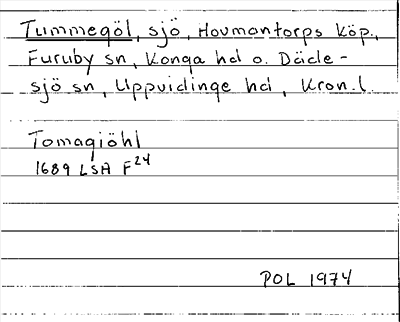 Tummegöl, sjö, Hovmantorps köp.,
Furuby sn, Konga hd o. Däde-
sjö sn, Uppvidinge hd, Kron. l.
Tomagiöhl
1689 LSA F24
POL 1974